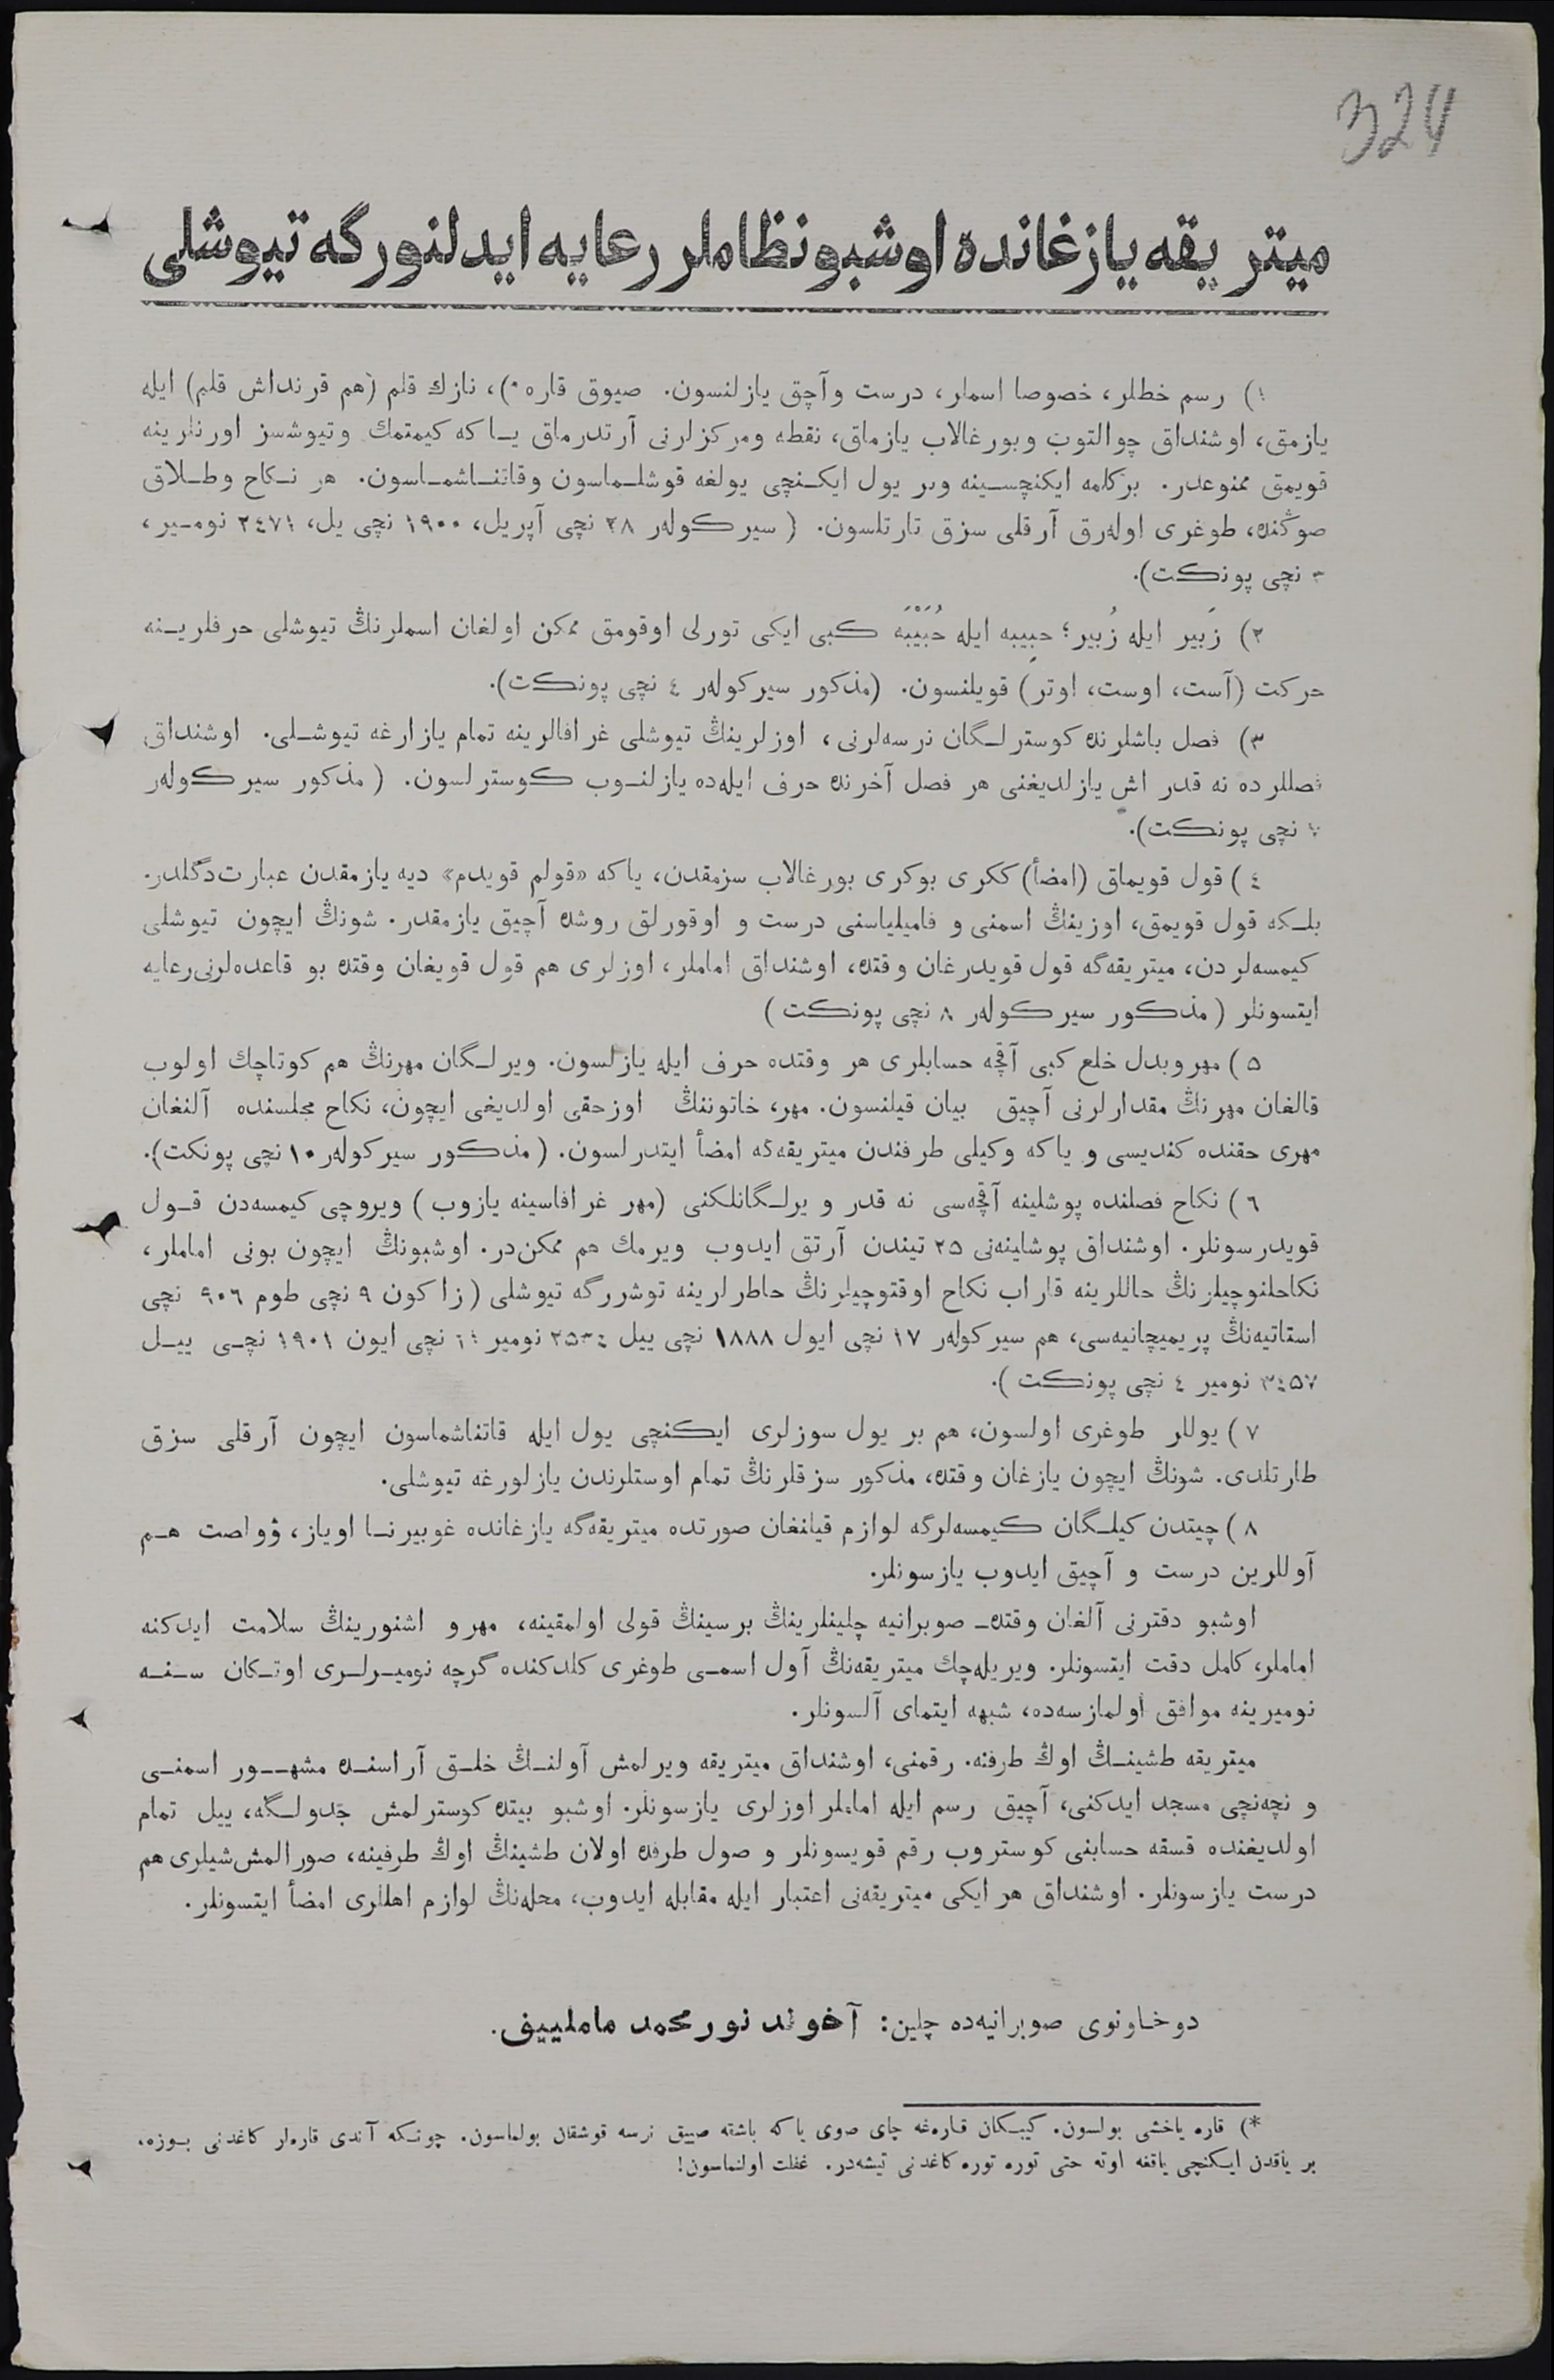 324
میتریقه یازغانده اوشبو نظاملر رعایه ایدلنورگه تیوشلی
۱) رسم خطلر، خصوصا اسملر، درست وآچق یازلنسون. صیوق قاره*)، نازك قلم (هم قرنداش قلم) ایله
یازمق، اوشنداق چوالتوب وبورغالاب یازماق، نقطه ومرکزلرنی آرتدرماق یـا که کیمتمك وتیوشسز اورنلرینه
قویمق ممنوعدر. برکلمه ایکنچسـینه وبر یول ایکـنچی یولغه قوشلـماسون وقاتنـاشمـاسون. هر نـکاح وطـلاق
صوڭنده، طوغری اولەرق آرقلی سزق تارتلسون. (سیرکولەر ۲۸ نچی آپریل، ۱۹۰۰ نچی یل، ۲٤۷۱ نومـیر،
نچی پونکت).
۲) زَبیر ایله زُبیر؛ حبِیبه ایله حُبَیْبَه کبی ایکی تورلی اوقومق ممکن اولغان اسملرنڭ تیوشلی حرفلریـنه
حرکت (آست، اوست، اوتر) قویلنسون. (مذکور سیرکولەر ٤ نچی پونکت).
۳) فصل باشلرنده کوسترلـگان نرسەلرنی، اوزلرینڭ تیوشلی غرافالرینه تمام یازارغه تیوشـلی. اوشنداق
فصللرده نه قدر اش یازلدیغنی هر فصل آخرنده حرف ایلەده یازلنـوب کوسترلسون. (مذکور سیرکولەر
نچی پونکت).
٤) قول قویماق (امضأ) ککری بوکری بورغالاب سزمقدن، یاکه «قولم قویدم» دیه یازمقدن عبارت دگلدر.
بلـکه قول قویمق، اوزینڭ اسمنی و فامیلیاسنی درست و اوقورلق روشده آچیق یازمقدر. شونڭ ایچون تیوشلی
کیمسەلردن، میتریقەگه قول قویدرغان وقتده، اوشنداق اماملر، اوزلری هم قول قویغان وقتده بو قاعدەلرنی رعایه
ایتسونلر (مذکور سیرکولەر ۸ نچی پونکت)
۵) مهر وبدل خلع کبی آقچه حسابلری هر وقتده حرف ایله یازلسون. ویرلـگان مهرنڭ هم کوتاچك اولوب
قالغان مهرنڭ مقدارلرنی آچیق بیان قیلنسون. مهر، خاتوننڭ اوزحقی اولدیغی ایچون، نکاح مجلسنده آلنغان
مهری حقنده کندیسی و یاکه وکیلی طرفندن میتریقەگه امضأ ایتدرلسون. (مذکور سیرکولەر ۱۰ نچی پونکت).
٦) نکاح فصلنده پوشلینه آقچەسی نه قدر ویرلـگانلکنی (مهر غرافاسینه یازوب) ویروچی کیمسەدن قـول
قویدرسونلر. اوشنداق پوشلینەنی ۲۵ تیندن آرتق ایدوب ویرمك هم ممکن‌در. اوشبونڭ ایچون بونی اماملر،
نکاحلنوچیلرنڭ حاللرینه قاراب نکاح اوقتوچیلرنڭ خاطرلرینه توشررگه تیوشلی (زاکون ۹ نچی طوم ۹۰٦ نچی
استاتیەنڭ پریمیچانیەسی، هم سیرکولەر ۱۷ نچی ایول ۱۸۸۸ نچی ییل ۲۵۳٤ نومیر ۱۱ نچی ایون ۱۹۰۱ نچـی ییـل
۳٤۵۷ نومیر ٤ نچی پونکت).
۷) یوللر طوغری اولسون، هم بر یول سوزلری ایکنچی یول ایله قاتناشماسون ایچون آرقلی سزق
طارتلدی. شونڭ ایچون یازغان وقتده، مذکور سزقلرنڭ تمام اوستلرندن یازلورغه تیوشلی.
۸) چیتدن کیلـگان کیمسەلرگه لوازم قیلنغان صورتده میتریقەگه یازغانده غوبیرنـا اویاز، ۋولصت هـم
آوللرین درست و آچیق ایدوب یازسونلر.
اوشبو دفترنی آلغان وقتدهـ صوبرانیه چلینلرینڭ برسینڭ قولی اولمقینه، مهر و اشنورینڭ سلامت ایدکنه
اماملر، کامل دقت ایتسونلر. ویریلەچك میتریقەنڭ آول اسمـی طوغری کلدکنده گرچه نومیـرلـری اوتـکان سـنـه
نومیرینه موافق اولمازسەده، شبهه ایتمای آلسونلر.
میتریقه طشینـڭ اوڭ طرفنه. رقمنی، اوشنداق میتریقه ویرلمش آولنـڭ خلـق آراسنـده مشهـور اسمنـی
و نچەنچی مسجد ایدکنی، آچیق رسم ایله اماملر اوزلری یازسونلر. اوشبو بیتده کوسترلمش جدولـگه، ییل تمام
اولدیغنده قسقه حسابنی کوستروب رقم قویسونلر و صول طرفده اولان طشینڭ اوڭ طرفینه، صورالمش شیلری هم
درست یازسونلر. اوشنداق هر ایکی میتریقەنی اعتبار ایله مقابله ایدوب، محلەنڭ لوازم اهللری امضأ ایتسونلر.
دوخاونوی صوبرانیەده چلین: آخوند نورمحمد ماملییف.
*) قاره یاخشی بولسون. کیبـکان قارەغه چای صوی یاکه باشقه صییق نرسه قوشقان بولماسون. چونـکه آندی قارەلر کاغدنی بـوزه،
بر یاقدن ایـکنچی یاققه اوته حتی توره توره کاغدنی تیشەدر. غفلت اولنماسون!